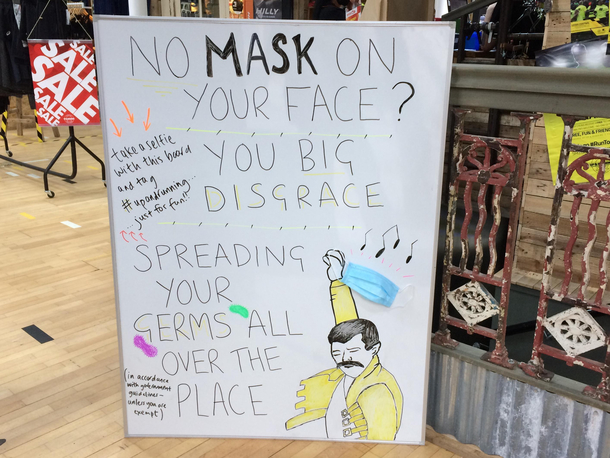 NO MASK ON
YOUR FACE?
take a selfie
with this board
and tag
#upandrunning...
...just for fun!!
YOU BIG
DISGRACE
SPREADING
YOUR
GERMS ALL
OVER THE
PLACE
(in accordance
with government
guidelines -
unless you are
exempt)
SALE
SALE
SALE
SALE